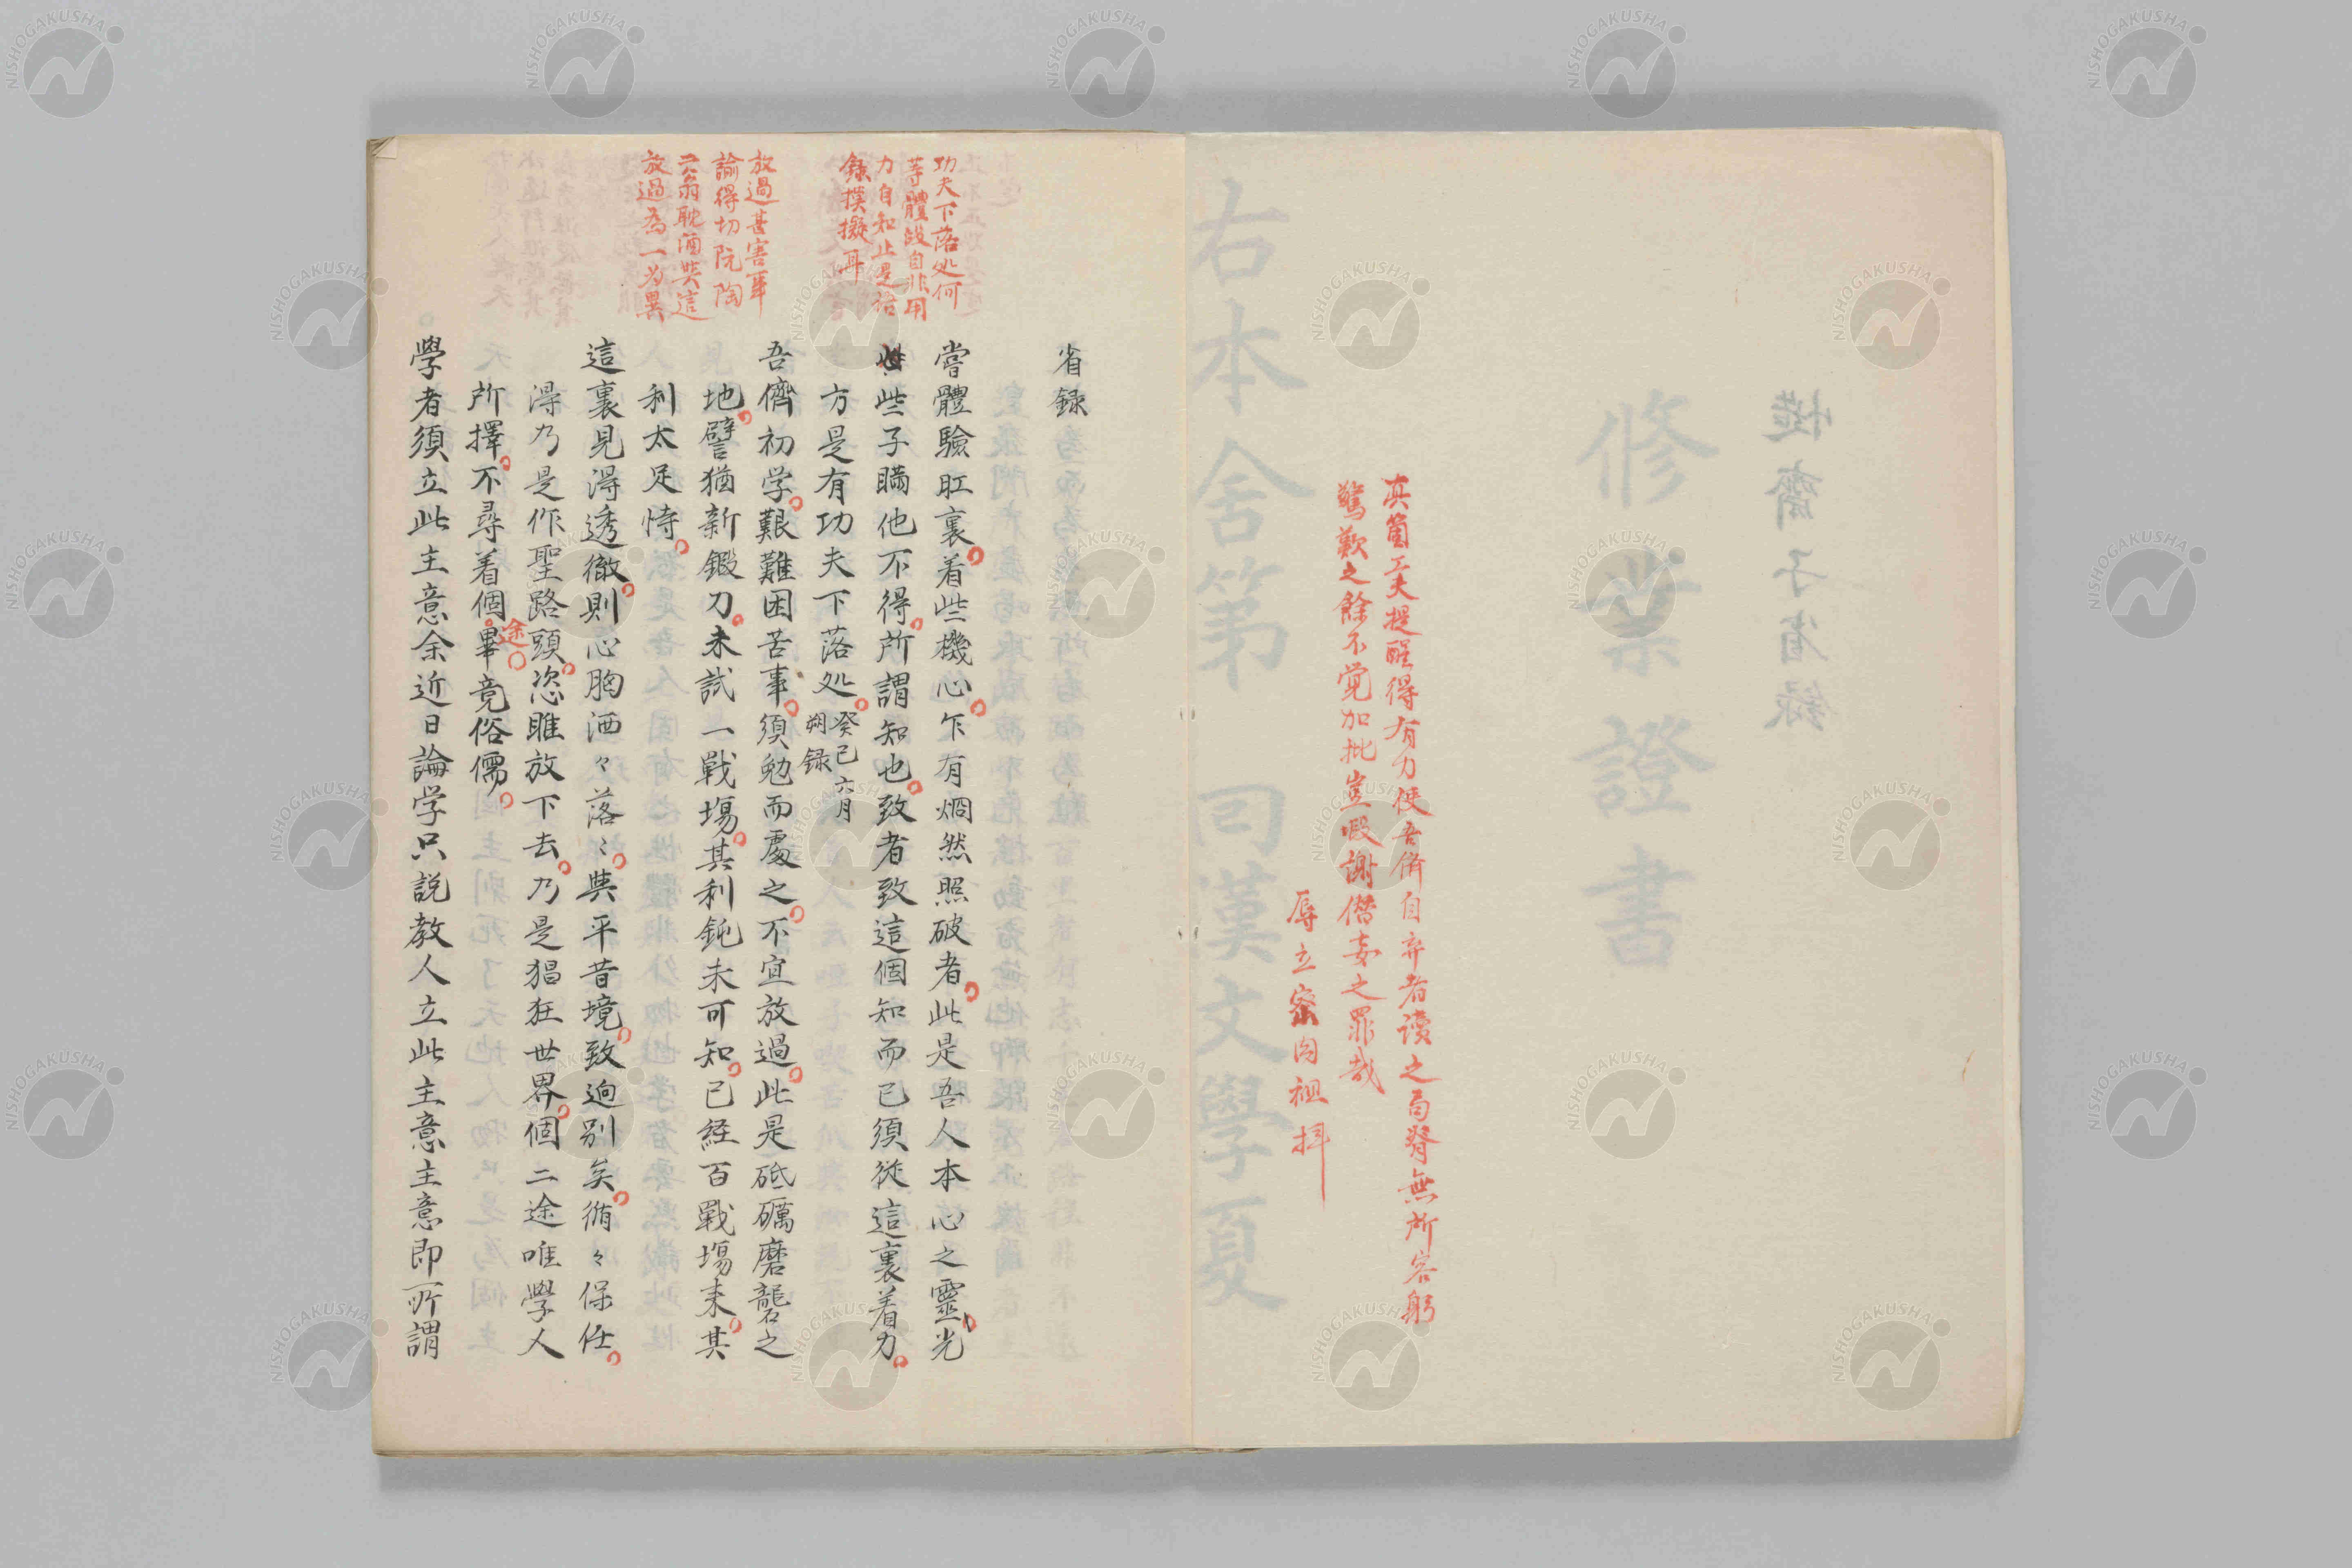 修業證書
右本舍第 回漢文學夏
真箇工夫提醒得有力使吾儕自弃者讀之局脊無所容躬
驚歎之餘不覚加批豈暇謝僭妄之罪哉
辱立密囚祖拝
功夫下落処何
等體段自非用
力自知止是語
錄摸擬耳
放過甚害事
諭得切阮陶
只翁耽酒與這
放過為一为異
省録
嘗體驗肛裏着些機心乍有烱然照破者此是吾人本心之靈光
些子瞞他不得所謂知也致者致這個知而已須從這裏着力
方是有功夫下落処 癸巳六月
朔録
吾儕初学艱難困苦事須勉而處之不宜放過此是砥礪磨礱之
地譬猶新鍛刀未試一戰場其利鈍未可知已経百戰場来其
利太足恃
這裏見得透徹則心胸洒々落々與平昔境致逈别矣循々保任
得乃是作聖路頭恣睢放下去乃是猖狂世界個二途唯學人
所擇不尋着個途畢竟俗儒
學者須立此主意余近日論学只説教人立此主意主意即所謂
NISHOGAKUSHA